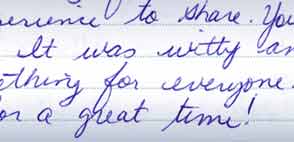 erience to share. You
It was witty an
ething for everyone.
or a great time!